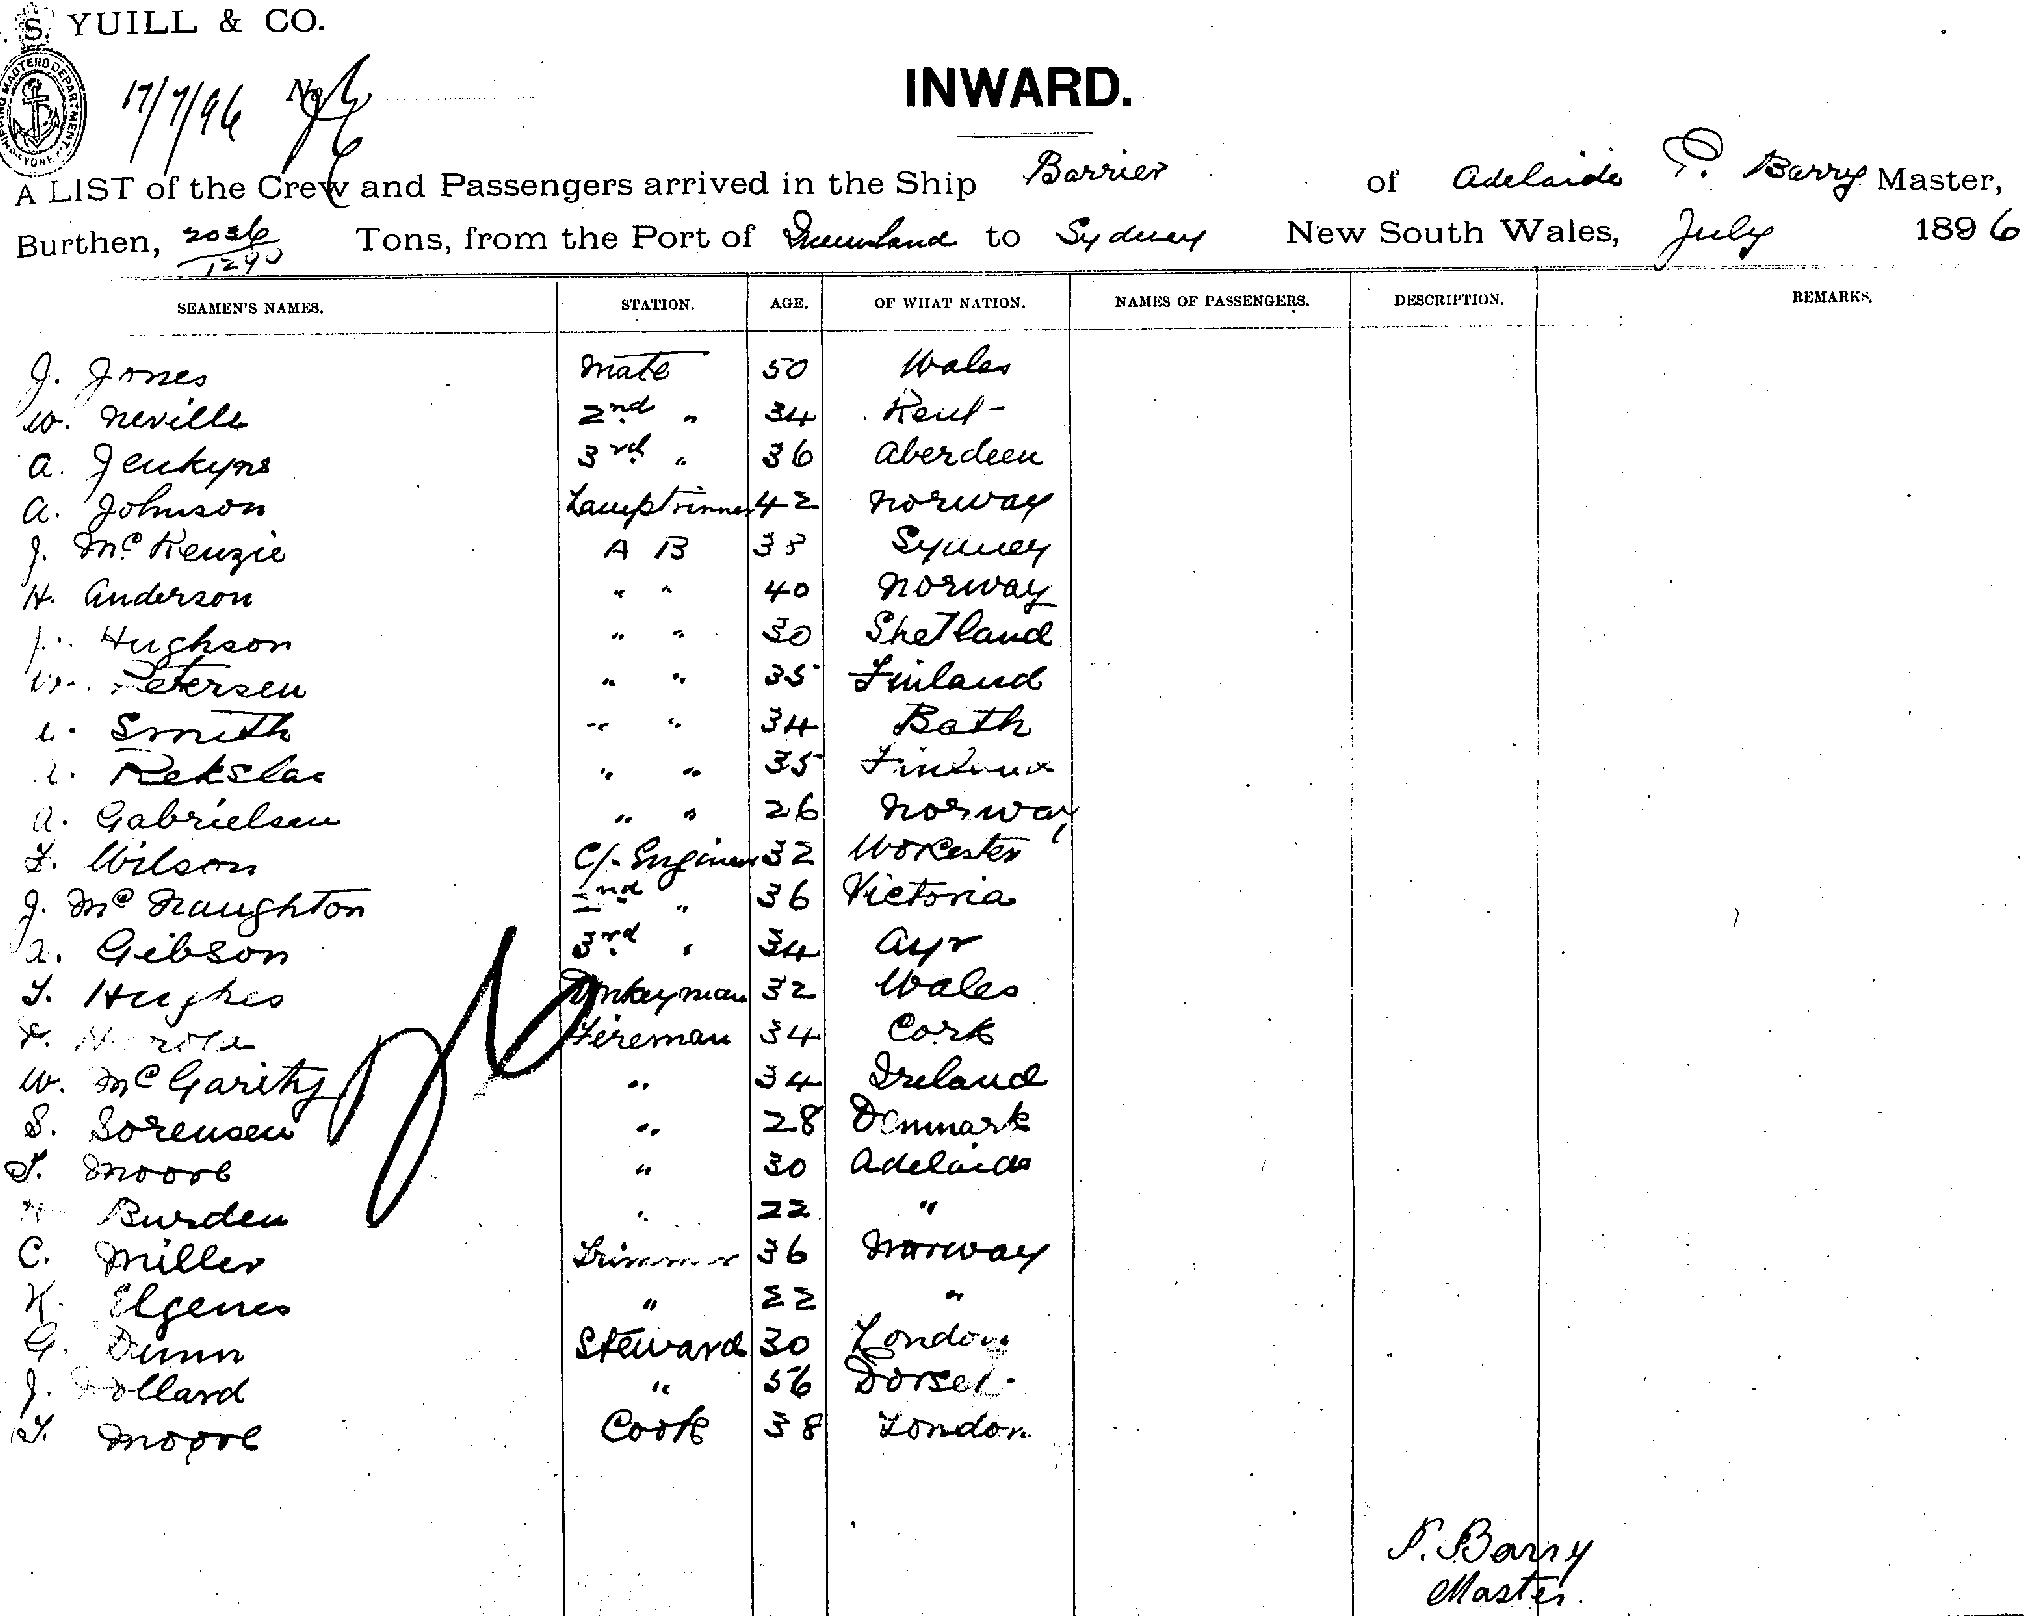 S. YUILL & CO.
SHIPPING MASTERS DEPARTMENT
17/7/96 No
INWARD.
A LIST of the Crew and Passengers arrived in the Ship Barrier of Adelaide P. Barry Master,
Burthen, 2036/1290 Tons, from the Port of Queensland to Sydney New South Wales, July 1896
SEAMEN'S NAMES. STATION. AGE. OF WHAT NATION. NAMES OF PASSENGERS. DESCRIPTION. REMARKS.
J. Jones Mate 50 Wales
W. Neville 2nd " 34 Kent
A. Jenkyns 3rd " 36 Aberdeen
A. Johnson Lamptrimmer 42 Norway
J. McKenzie A B 38 Sydney
H. Anderson " " 40 Norway
J. Hughson " " 30 Shetland
W. Petersen " " 35 Finland
Smith " " 34 Bath
" " 35 Finland
A. Gabrielsen " " 26 Norway
F. Wilson C/- Engineer 32 Worcester
J. McNaughton 2nd " 36 Victoria
A. Gibson 3rd " 34 Ayr
T. Hughes Donkeyman 32 Wales
Fireman 34 Cork
W. McGarity " 34 Ireland
S. Sorensen " 28 Denmark
T. Moore " 30 Adelaide
Burden " 22 "
C. Miller Trimmer 36 Norway
K. Elgenes " 22 "
G. Dunn Steward 30 London
J. " 56 Dorset
T. Moore Cook 38 London
P. Barry
Master.